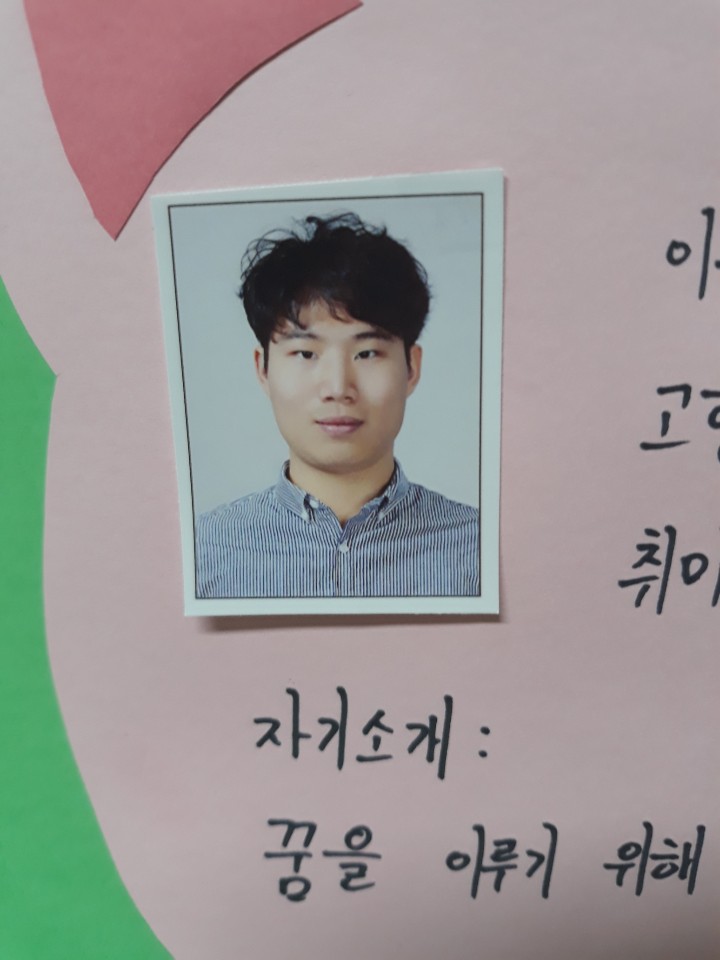 취미
자기소개 :
꿈을 이루기 위해